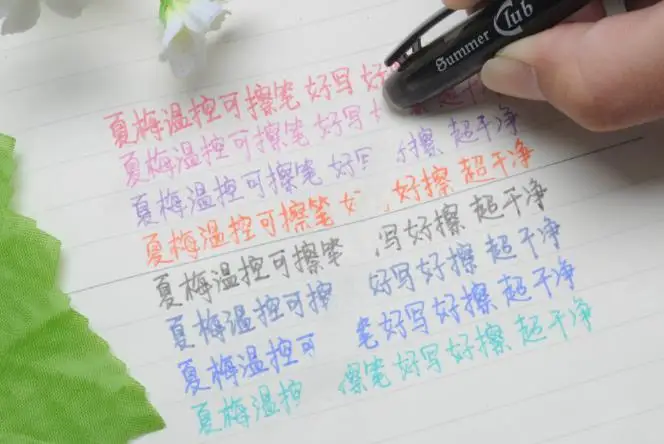 Summer Club
夏梅温控可擦笔 好写 好 超干净
夏梅温控可擦笔 好写 擦 超干净
夏梅温控可擦笔 好写 擦 超干净
夏梅温控可擦笔 好擦 超干净
夏梅温控可擦笔 写好擦 超干净
夏梅温控可擦 好写好擦 超干净
夏梅温控可 笔好写好擦 超干净
夏梅温控 擦笔 好写好擦 超干净